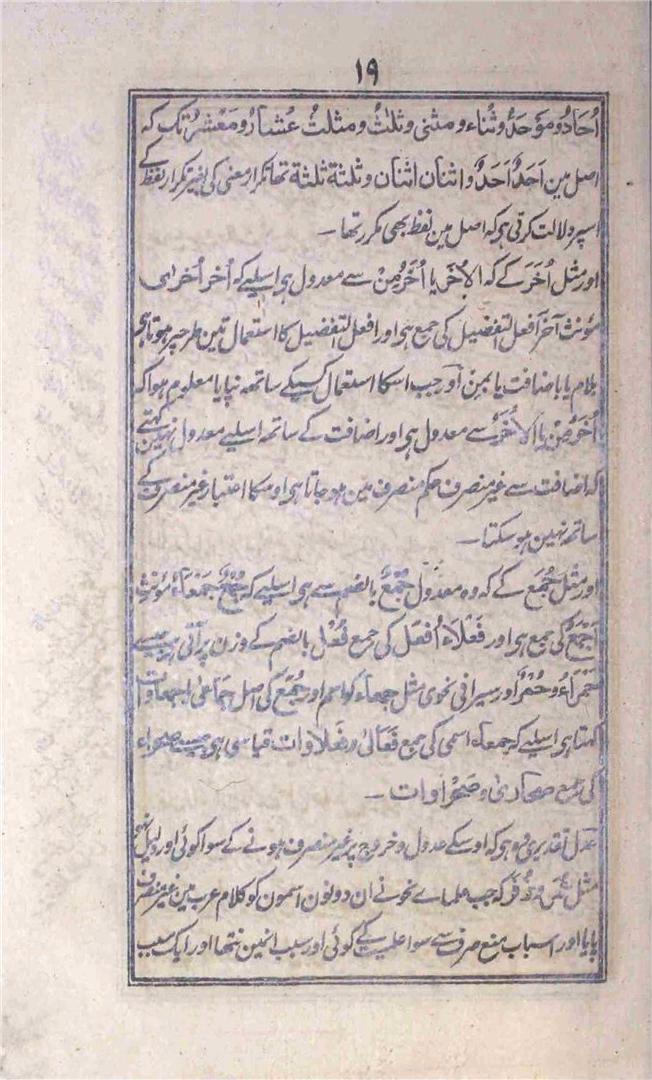 ١٩
اُحَادُ و مَوْحَدُ و ثُناء و مثنى و ثلٰثُ و مثلثُ عُشَارُ و مَعْشَرُ تک کہ
اصل مین اَحَدٌ اَحَدٌ و اثنان اثنان و ثلثة ثلثة تھا تکرار معنی کی بغیر تکرار لفظ کے
اسپر دلالت کرتی ہی کہ اصل مین لفظ بھی مکرر تھا ۔
اور مثل اُخَرَ کے کہ الاُخَر یا اُخَرُ مِنْ سے معدول ہی اسلیے کہ اُخر اُخرٰی
مؤنث آخَر افعل التفضیل کی جمع ہی اور افعل التفضیل کا استعمال تین طرحپر ہوتا ہی
بلام یا باضافت یا بمن اور جب اسکا استعمال کسیکے ساتھ نپایا معلوم ہوا کہ
اُخَرُ مِنْ یا الاُخَرُ سے معدول ہی اور اضافت کے ساتھ اسلیے معدول نہین کہتے
کہ اضافت سے غیر منصرف حکم منصرف مین ہو جاتا ہی اوسکا اعتبار غیر منصرف کے
ساتھ نہین ہو سکتا ۔
اور مثل جُمَع کے کہ وہ معدول جُمْعٌ بالضم سے ہی اسلیے کہ جُمَعُ جَمْعَاءُ مؤنث
اَجْمَعُ کی جمع ہی اور فَعْلَاءُ اَفْعَل کی جمع فُعْل بالضم کے وزن پر آتی ہی جیسے
حَمْرَاءُ و حُمْرٌ اور سیرافی نحوی مثل جمعاء کو اسم اور جُمَع کی اصل جَمَاعیٰ یا جمعاوات
کہتا ہی اسلیے کہ جمعاء اسمی کی جمع فَعَالیٰ و فعلاوات قیاسی ہی جیسے صحراء
کی جمع صحاریٰ و صَحْراوات ۔
عدل تقدیری وہ ہی کہ اوسکے عدول و خروج پر غیر منصرف ہونے کے سوا کوئی اور دلیل نہو
مثل عُمَر و زُفَر کہ جب علماے نحو نے ان دونون اسمون کو کلام عرب مین غیر منصرف
پایا اور اسباب منع صرف سے سوا علمیت کے کوئی اور سبب انمین نتھا اور ایک سبب